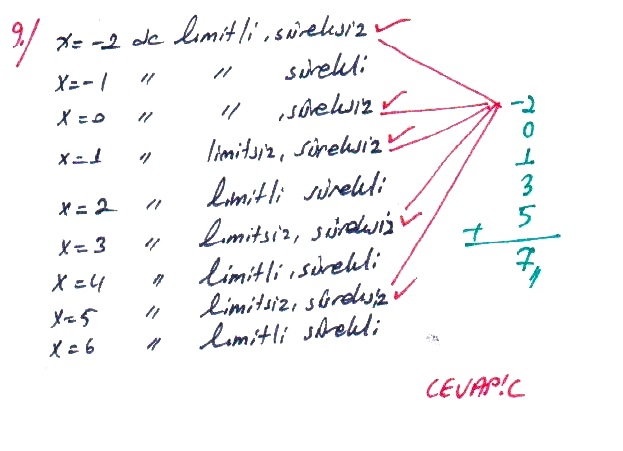 9./ x = -2 de limitli, süreksiz ✓
x = -1 " " sürekli
x = 0 " " , süreksiz ✓
x = 1 " limitsiz, süreksiz ✓
x = 2 " limitli sürekli
x = 3 " limitsiz, süreksiz ✓
x = 4 " limitli, sürekli
x = 5 " limitsiz, süreksiz ✓
x = 6 " limitli sürekli
-2
0
1
3
5
+
7,,
CEVAP: C